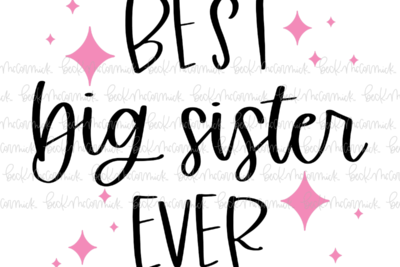 BEST
big sister
EVER